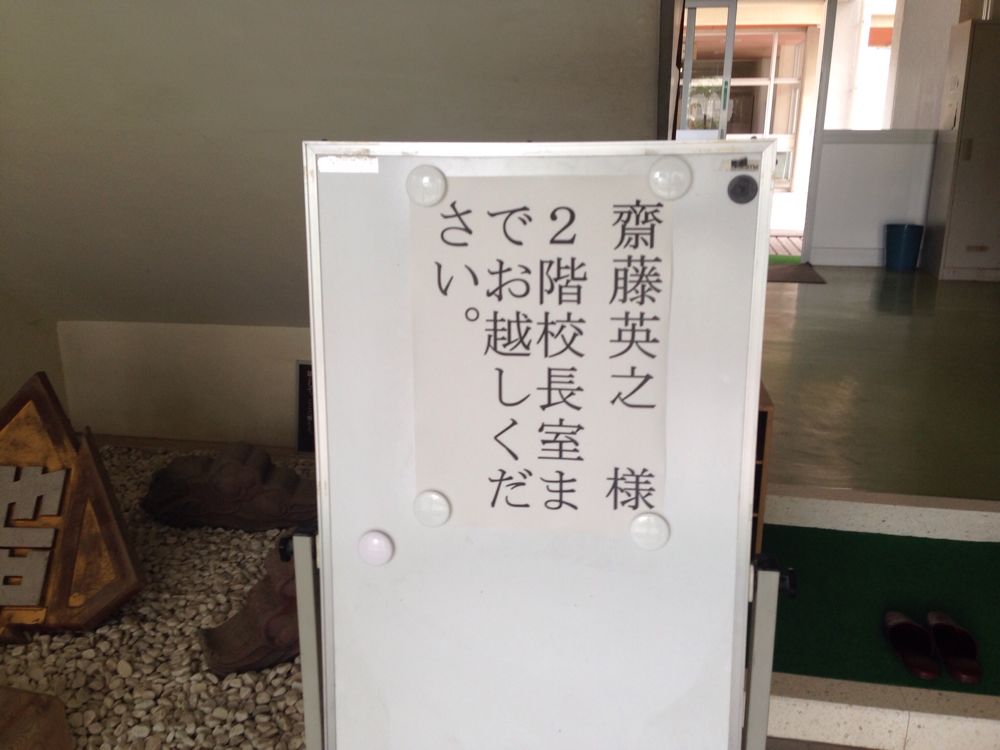 齋藤英之　様
２階校長室ま
でお越しくだ
さい。